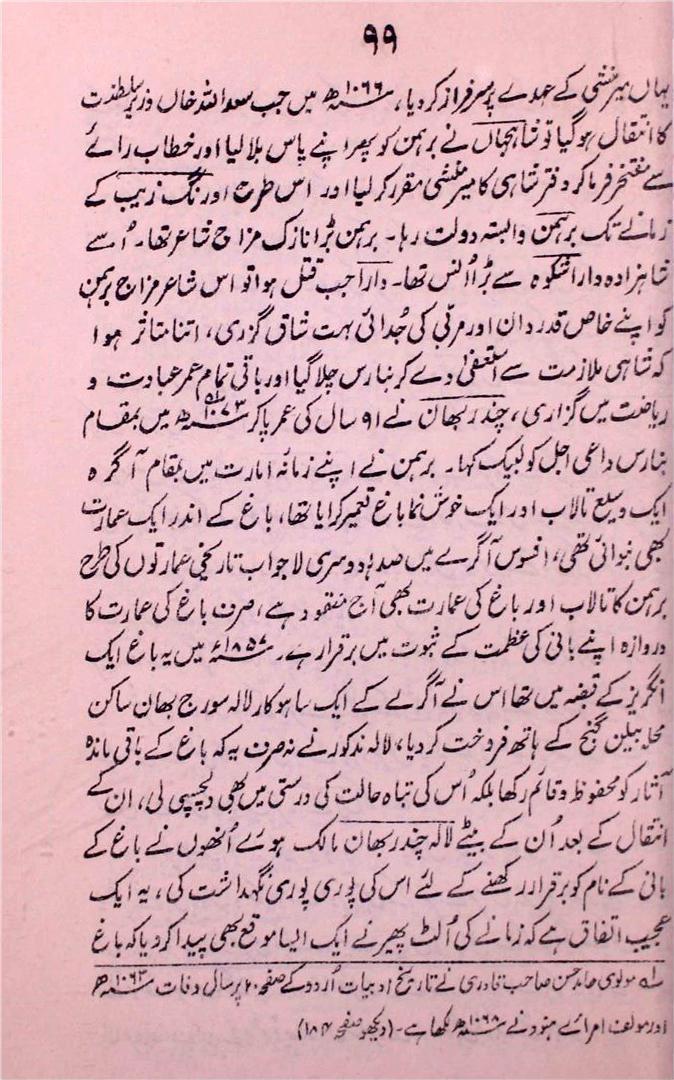 ۹۹
یہاں میر منشی کے عہدے پر سرفراز کر دیا، ۱۰۶۶ھ میں جب سعد اللہ خاں وزیر سلطنت
کا انتقال ہو گیا تو شاہجہاں نے برہمن کو پھر اپنے پاس بلا لیا اور خطاب رائے
سے مفتخر فرما کر دفتر شاہی کا میر منشی مقرر کر لیا اور اس طرح اورنگ زیب کے
زمانے تک برہمن وابستہ دولت رہا۔ برہمن بڑا نازک مزاج شاعر تھا۔ اُسے
شاہزادہ دارا شکوہ سے بڑا اُنس تھا۔ دارا جب قتل ہوا تو اس شاعر مزاج برہمن
کو اپنے خاص قدردان اور مربی کی جُدائی بہت شاق گزری، اتنا متاثر ہوا
کہ شاہی ملازمت سے استعفیٰ دے کر بنارس چلا گیا اور باقی تمام عمر عبادت و
ریاضت میں گزاری، چندر بھان نے ۹۱ سال کی عمر پا کر ۱۰۷۳ھ میں بمقام
بنارس داعی اجل کو لبیک کہا۔ برہمن نے اپنے زمانہ امارت میں بمقام آگرہ
ایک وسیع تالاب اور ایک خوش نما باغ تعمیر کرایا تھا، باغ کے اندر ایک عمارت
بھی بنوائی تھی، افسوس آگرے میں صدہا دوسری لاجواب تاریخی عمارتوں کی طرح
برہمن کا تالاب اور باغ کی عمارت بھی آج مفقود ہے، صرف باغ کی عمارت کا
دروازہ اپنے بانی کی عظمت کے ثبوت میں برقرار ہے۔ ۱۸۵۷ء میں یہ باغ ایک
انگریز کے قبضہ میں تھا اس نے آگرے کے ایک ساہوکار لالہ سورج بھان ساکن
محلہ بیلن گنج کے ہاتھ فروخت کر دیا، لالہ مذکور نے نہ صرف یہ کہ باغ کے باقی ماندہ
آثار کو محفوظ و قائم رکھا بلکہ اُس کی تباہ حالت کی درستی میں بھی دلچسپی لی، ان کے
انتقال کے بعد اُن کے بیٹے لالہ چندر بھان مالک ہوئے اُنھوں نے باغ کے
بانی کے نام کو برقرار رکھنے کے لئے اس کی پوری پوری نگہداشت کی، یہ ایک
عجیب اتفاق ہے کہ زمانے کی اُلٹ پھیر نے ایک ایسا موقع بھی پیدا کر دیا کہ باغ
لہ مولوی حامد حسن صاحب قادری نے تاریخ ادبیات اُردو کے صفحہ ۲۰ پر سال وفات ۱۰۶۳ھ
اور مولف امرائے ہنود نے ۱۰۶۸ھ لکھا ہے۔ (دیکھو صفحہ ۱۸۴)